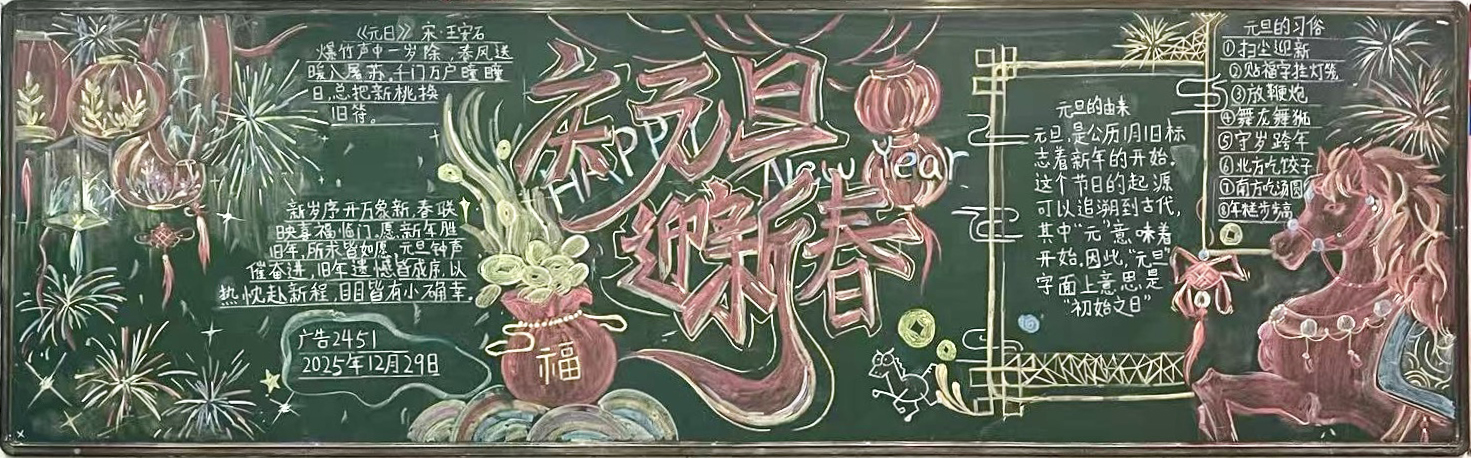 《元日》 宋·王安石
爆竹声中一岁除,春风送
暖入屠苏,千门万户瞳瞳
日,总把新桃换
旧符。
新岁序开万象新,春联
映喜福临门,愿新年胜
旧年,所求皆如愿,元旦钟声
催奋进,旧年遗憾皆成序,以
热忱赴新程,日日皆有小确幸。
广告2451
2025年12月29日
福
庆元旦
HAPPY New Year
迎新春
元旦的由来
元旦,是公历1月1日标
志着新年的开始.
这个节日的起源
可以追溯到古代,
其中“元”意味着
开始.因此,“元旦”
字面上意思是
“初始之日”
元旦的习俗
①扫尘迎新
②贴福字挂灯笼
③放鞭炮
④舞龙舞狮
⑤守岁跨年
⑥北方吃饺子
⑦南方吃汤圆
⑧年糕步步高